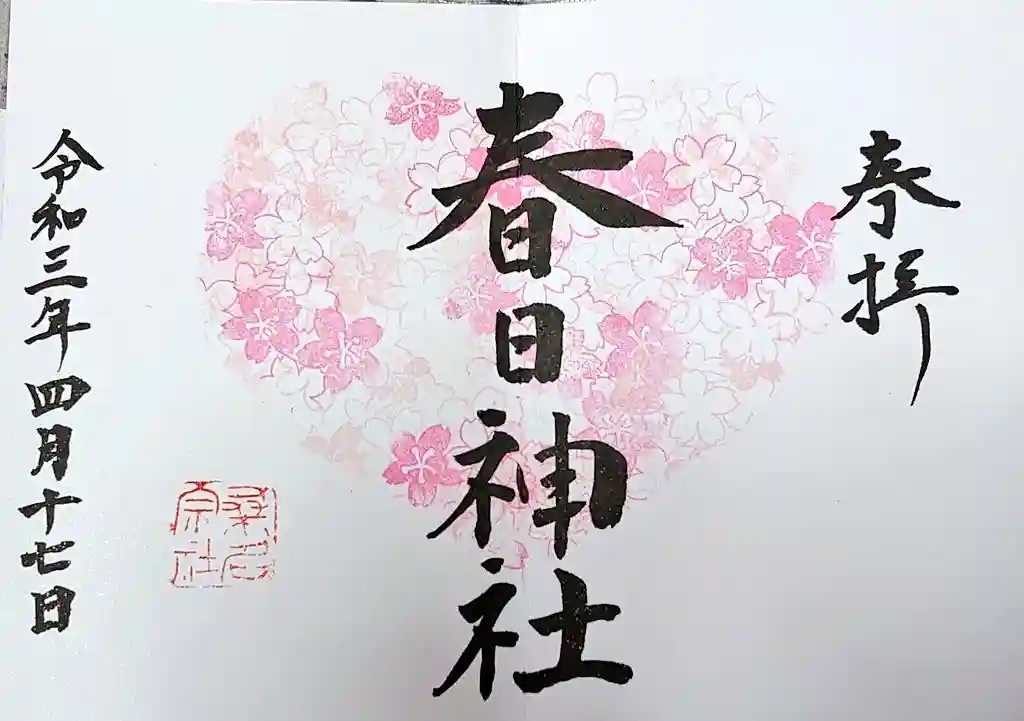 奉拝
春日神社
令和三年四月十七日